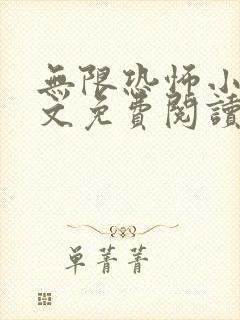 無限恐怖小
文免費閱讀
单菁菁